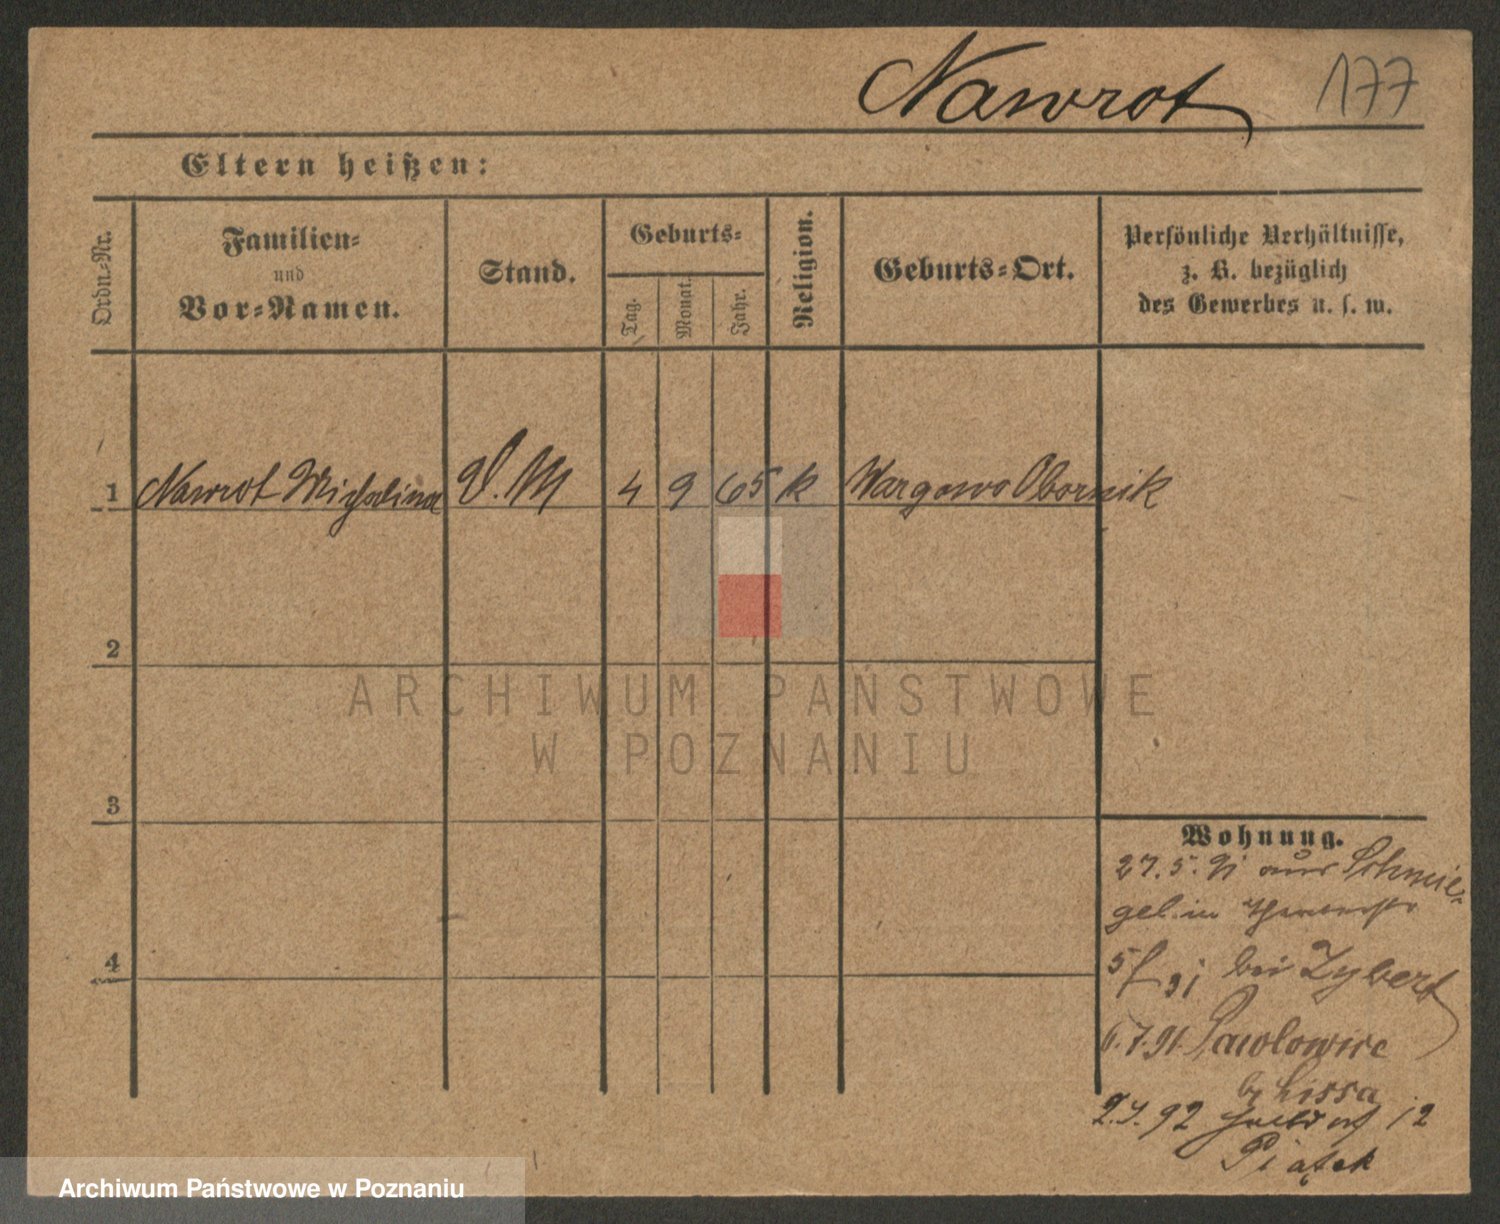 Nawrot 177
Eltern heißen:
Ordn.-Nr.
Familien-
und
Vor-Namen.
Stand.
Geburts-
Tag.
Monat.
Jahr.
Religion.
Geburts-Ort.
Persönliche Verhältnisse,
z. B. bezüglich
des Gewerbes u. s. w.
1 Nawrot Michalina D. M 4 9 65 k Wargowo Obornik
2
ARCHIWUM PAŃSTWOWE
W POZNANIU
3
Wohnung.
27.5.91 aus Schmie-
gel in
5 91 bei Zybert
4
6.7.91 Pawlowice
b/ Lissa
2.4.92 12
Piątek
Archiwum Państwowe w Poznaniu